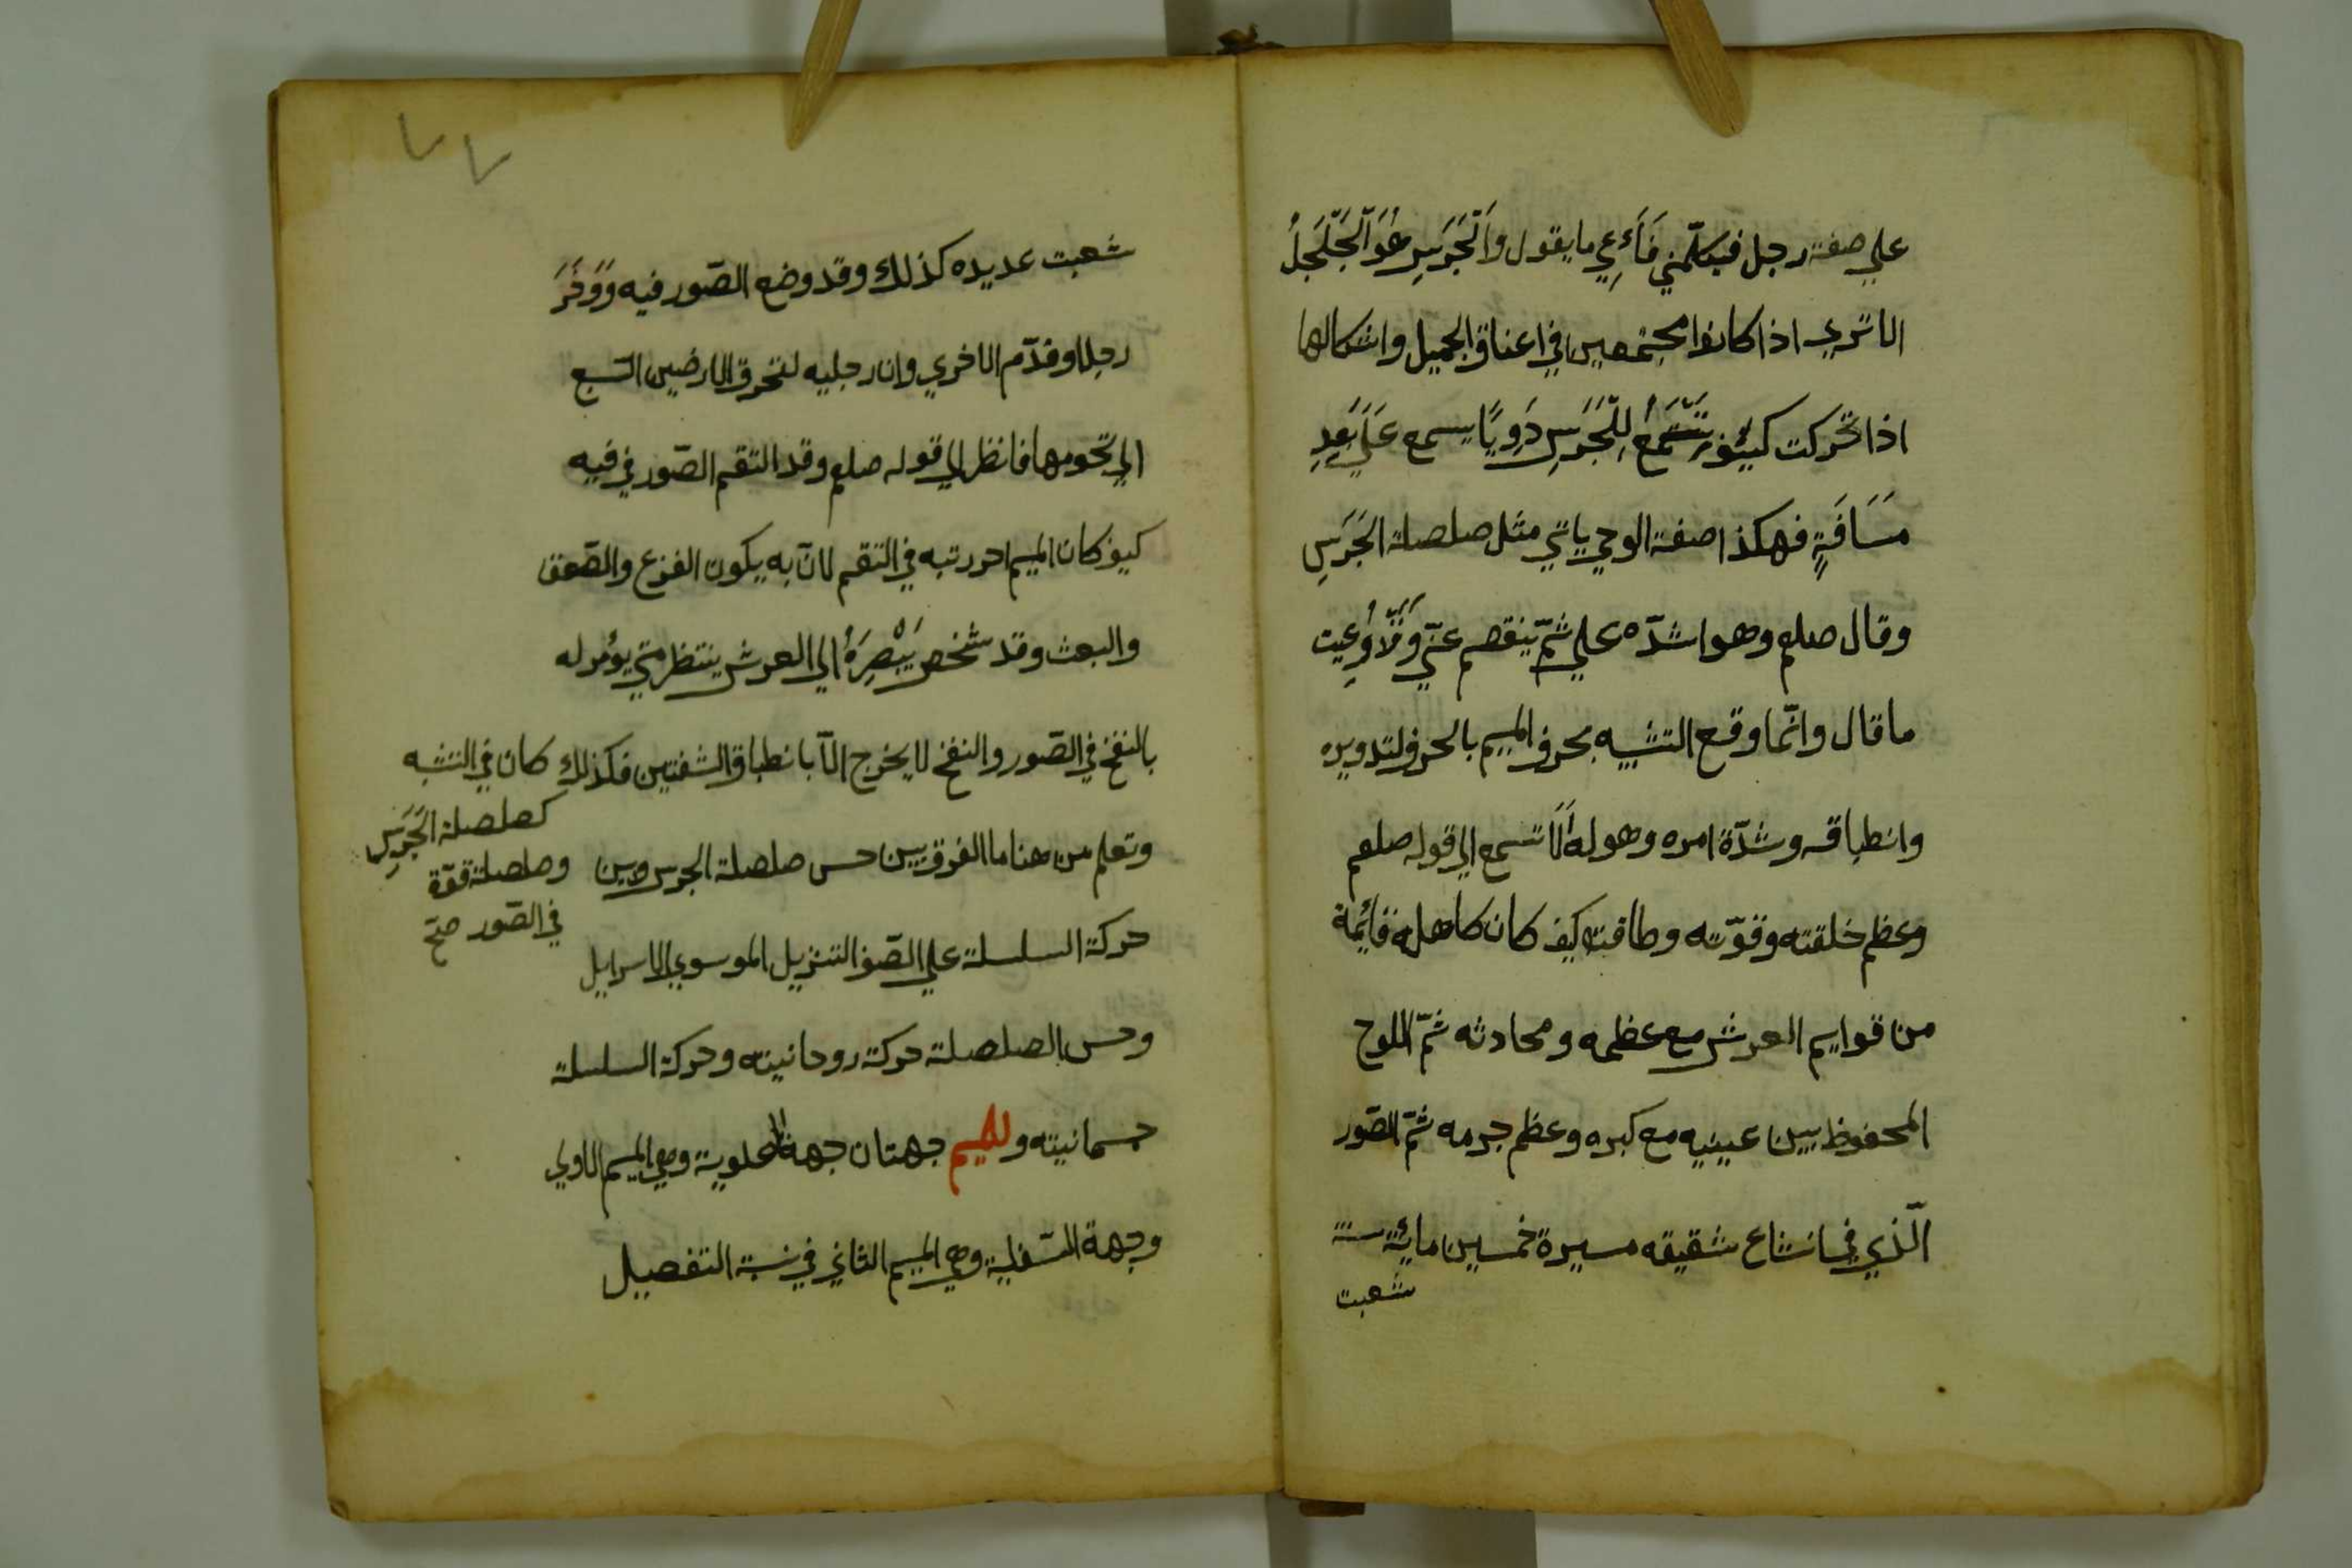 علي صفة رجل فيكلّمني فَأَعِي ما يقول وَالْجَرَسِ هُوَ الْجَلْجَلُ
الا تري اذا كانوا مجتمعين في اعناق الجميل واشكالها
اذا تحركت كيف تَسْمَعُ لِلْجَرَسِ دَوِيًا يسمع عَلَي بَعْدِ
مَسَافَةٍ فهكذا صفة الوحي ياتي مثل صلصلة الجَرَسِ
وقال صلعم وهو اشدّه علي ثمّ ينفصم عنّي وَقَدْ وُعِيت
ما قال وانّما وقع التشبيه بحرف الميم بالحرف لتدويره
وانطباقه وشدّة امره وهوله أَلَا تسمع الي قوله صلعم
وعظم خلقته وقوّته وطاقته كيف كان كاهله قائمة
من قوايم العرش مع عظمه ومحادثه ثمّ اللوح
المحفوظ بين عينيه مع كبره وعظم جرمه ثمّ الصّور
الّذي في اتساع شقيقه مسيرة خمسين مائة سنة
شعبت
٧٧
شعبت عديده كذلك وقد وضع الصّور فيه وَوَخَرَ
رجلا وقدّم الاخري وان رجليه لتخرق الارضين السّبع
الي تخومها فانظر الي قوله صلعم وقد التقم الصّور في فيه
كيف كان الميم احد رتبه في التقم لانّ به يكون الفزع والصّعق
والبعث وقد شخص بَبْصِرَهُ الي العرش ينتظر متي يؤمر له
بالنفخ في الصّور والنفخ لا يخرج الّا بانطباق الشفتين فكذلك كان في التشبه
كصلصلة الجَرَسِ
وصلصلة قوّة
في الصّور صح
وتعلم من هنا ما الفرق بين حس صلصلة الجرس وبين
حركة السلسلة علي الصّفا التنزيل الموسوي الاسرايل
وحس الصلصلة حركة روحانيته وحركة السلسلة
جسمانيته وللميم جهتان جهة العلوية وهي الميم الاولي
وجهة السّفلية وهي الميم الثاني في نسبة التفصيل